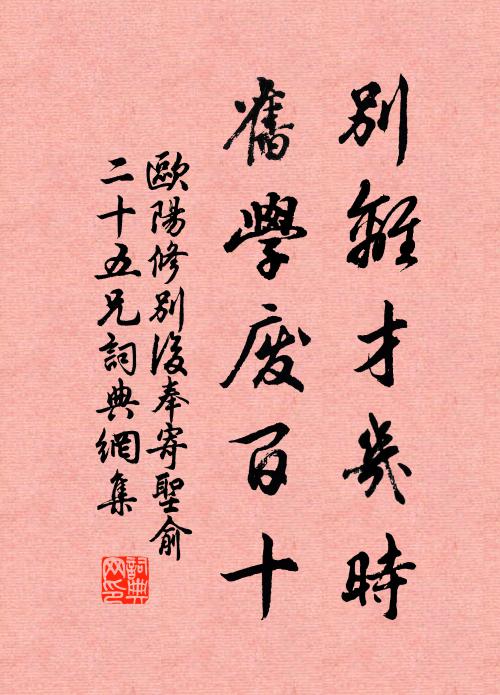 別離才幾時
舊學廢百十
歐陽修別後奉寄聖俞
二十五兄詞典網集
詞典
网印